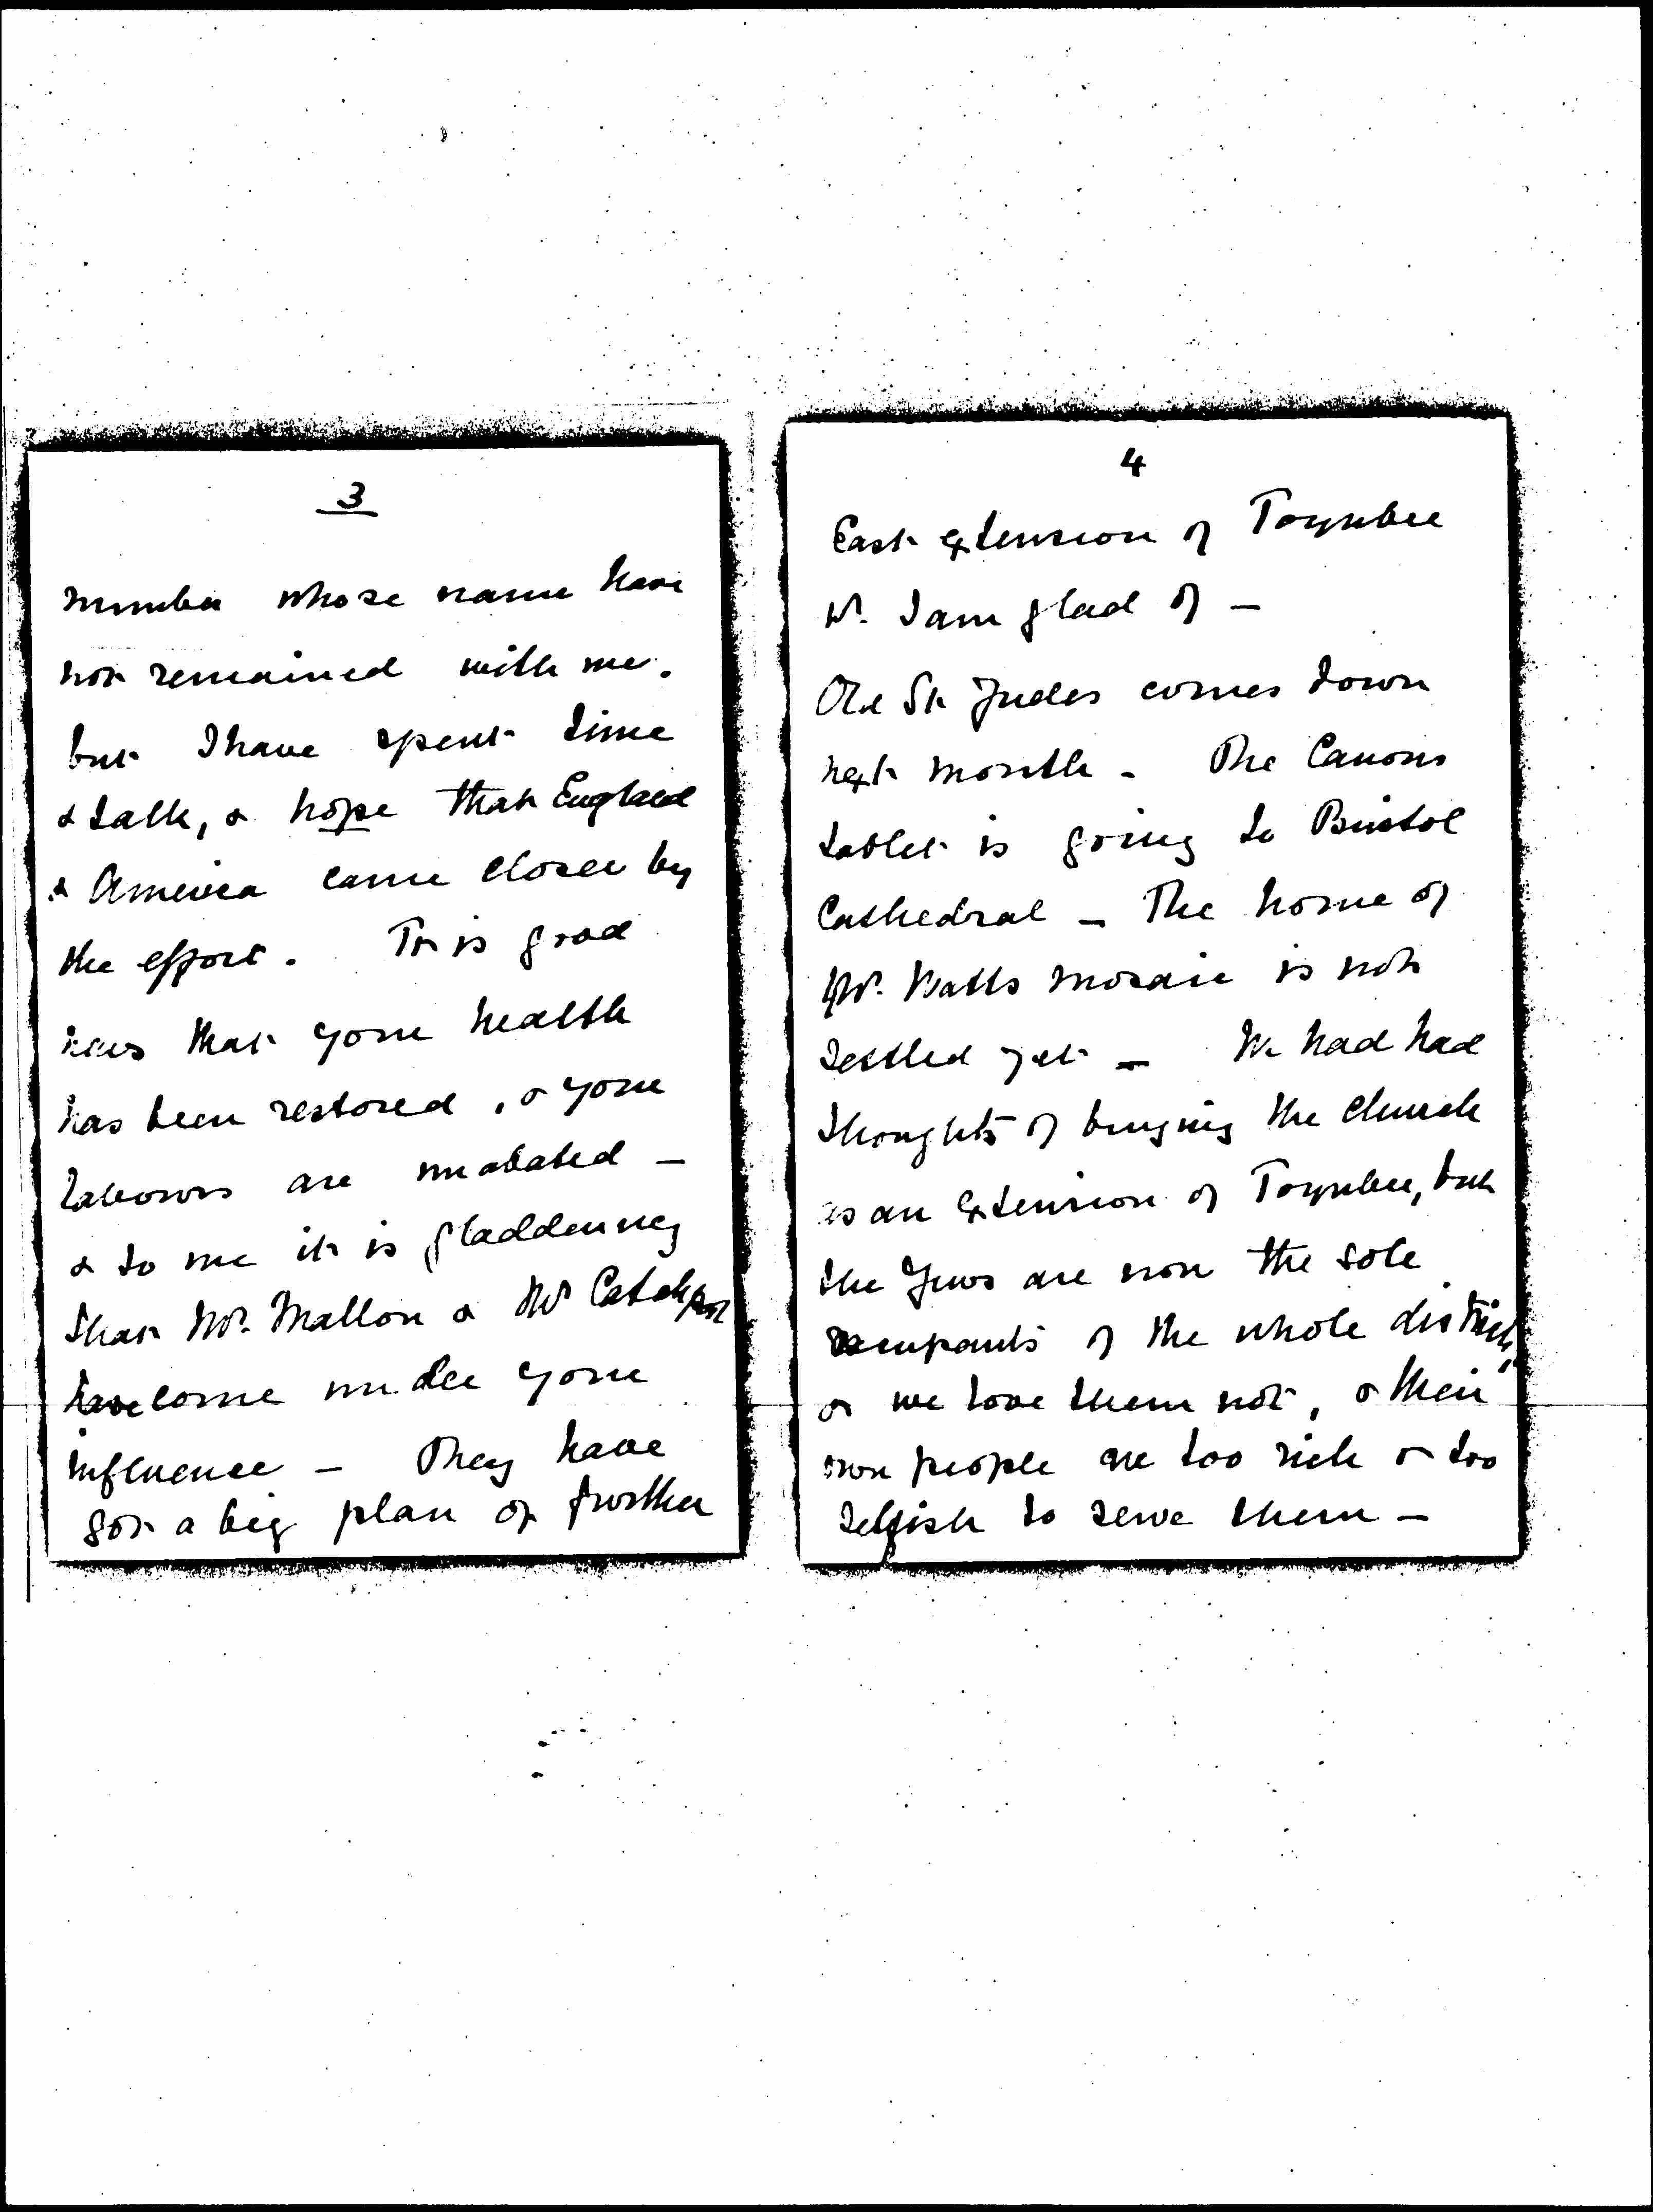 3
number whose name have
not remained with me.
but I have spent time
& talk, & hope that England
& America came closer by
the effort. It is good
news that your health
has been restored, & your
labours are unabated –
& to me it is gladdening
that Mr. Mallon & Mr Catchpool
have come under your
influence – They have
got a big plan of further
4
East extension of Toynbee
wh. I am glad of –
Old St Judes comes down
next month – The Canons
tablet is going to Bristol
Cathedral – The home of
Mr. Watts mosaic is not
settled yet – We had had
thoughts of buying the church
as an extension of Toynbee, but
the Jews are now the sole
occupants of the whole district
& we love them not, & their
own people are too rich & too
selfish to serve them –